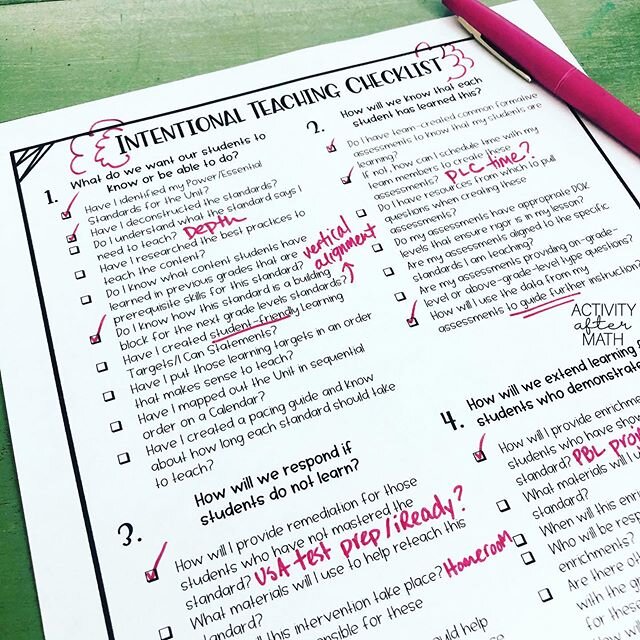 INTENTIONAL TEACHING CHECKLIST
1.
What do we want our students to
know or be able to do?
Have I identified my Power/Essential
Standards for the Unit?
Have I deconstructed the standards?
Do I understand what the standard says I
need to teach? Depth
Have I researched the best practices to
teach the content?
Do I know what content students have
learned in previous grades that are
prerequisite skills for this standard?
vertical
alignment
Do I know how this standard is a building
block for the next grade levels standards?
Have I created student-friendly learning
Targets/I Can Statements?
Have I put those learning targets in an order
that makes sense to teach?
Have I mapped out the Unit in sequential
order on a Calendar?
Have I created a pacing guide and know
about how long each standard should take
to teach?
2.
How will we know that each
student has learned this?
Do I have team-created common formative
assessments to know that my students are
learning?
If not, how can I schedule time with my
team members to create these
assessments? PLC time?
Do I have resources from which to pull
questions when creating these
assessments?
Do my assessments have appropriate DOK
levels that ensure rigor is in my lesson?
Are my assessments aligned to the specific
standards I am teaching?
Are my assessments providing on-grade-
level or above-grade-level type questions?
How will I use the data from my
assessments to guide further instruction?
ACTIVITY
after
MATH
3.
How will we respond if
students do not learn?
How will I provide remediation for those
students who have not mastered the
standard? USA test prep/iReady?
What materials will I use to help reteach this
standard?
will this intervention take place? Homeroom
for these
help
4.
How will we extend learning
students who demonstrate
How will I provide
students who have
standard? PBL
What materials will I
standard?
When will this
Who will be
enrichments?
Are there
with the
for these